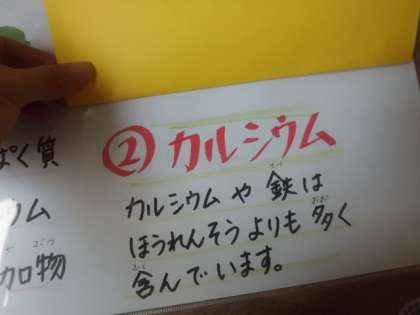 ぱく質
ウム
加物
② カルシウム
カルシウムや鉄は
ほうれんそうよりも多く
含んでいます。